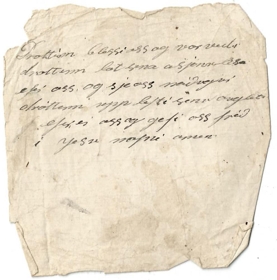 Drottinn blessi oss og varveiti
drottinn lát sína ásjónu lísa
ifir oss. og sje oss náðugur
drottinn upp lifti sínu augliti
ifir oss og gefi oss frið
í jesu nafni amen